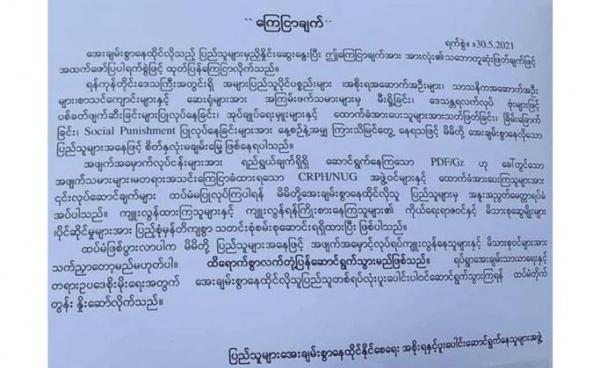 ``ကြေငြာချက်``
ရက်စွဲ။ ။30.5.2021
အေးချမ်းစွာနေထိုင်လိုသည့် ပြည်သူများမှညှိနှိုင်းဆွေးနွေးပြီး ဤကြေငြာချက်အား အားလုံး၏သဘောတူဆုံးဖြတ်ချက်ဖြင့်
အထက်ဖော်ပြပါရက်စွဲဖြင့် ထုတ်ပြန်ကြေငြာလိုက်သည်။
ရန်ကုန်တိုင်းဒေသကြီးအတွင်းရှိ အများပြည်သူပိုင်ပစ္စည်းများ ၊အစိုးရအဆောက်အဦးများ၊ သာသနိကအဆောက်အဦ
များ၊စာသင်ကျောင်းများနှင့် ဆေးရုံများအား အကြမ်းဖက်သမားများမှ မီးရှို့ခြင်း၊ ဒေသန္တရလက်လုပ် ဗုံးများဖြင့်
ပစ်ခတ်ဖျက်ဆီးခြင်းများပြုလုပ်နေခြင်း၊ အုပ်ချုပ်ရေးမှူးများနှင့် ထောက်ခံအားပေးသူများအားသတ်ဖြတ်ခြင်း၊ ခြိမ်းခြောက်
ခြင်း၊ Social Punishment ပြုလုပ်နေခြင်းများအား နေ့စဉ်နှင့်အမျှ ကြားသိမြင်တွေ့ နေရသဖြင့် မိမိတို့ အေးချမ်းစွာနေလိုသော
ပြည်သူများအနေဖြင့် စိတ်နှလုံးမချမ်းမြေ့ ဖြစ်နေရပါသည်။
အဖျက်အမှောက်လုပ်ငန်းများအား ရည်ရွယ်ချက်ရှိရှိ ဆောင်ရွက်နေကြသော PDF/Gz ဟု ခေါ်တွင်သော
အဖျက်သမားများ၊မတရားအသင်းကြေငြာခံထားရသော CRPH/NUG အဖွဲ့ဝင်များနှင့် ထောက်ခံအားပေးကြသူများအား
၎င်းလုပ်ဆောင်ချက်များ ထပ်မံမပြုလုပ်ကြပါရန် မိမိတို့အေးချမ်းစွာနေထိုင်လိုသူ ပြည်သူများမှ အနူးအညွတ်မေတ္တာရပ်ခံ
အပ်ပါသည်။ ကျူးလွန်ထားကြသူများနှင့် ကျူးလွန်ရန်ကြိုးစားနေကြသူများ၏ ကိုယ်ရေးရာဇဝင်နှင့် မိသားစုဆွေမျိုးများ
၊ပိုင်ဆိုင်မှုများအား ပြည့်စုံမှန်တိကျစွာ သတင်းစုံစမ်းစုဆောင်းရရှိထားပြီး ဖြစ်ပါသည်။
ထပ်မံဖြစ်ပွားလာပါက မိမိတို့ ပြည်သူများအနေဖြင့် အဖျက်အမှောင့်လုပ်ရပ်ကျူးလွန်နေသူများနှင့် မိသားစုဝင်များအား
သက်ညှာတော့မည်မဟုတ်ပါ။ ထိရောက်စွာလက်တုံ့ပြန်ဆောင်ရွက်သွားမည်ဖြစ်သည်။ ရပ်ရွာအေးချမ်းသာယာရေးနှင့်
တရားဥပဒေစိုးမိုးရေးအတွက် အေးချမ်းစွာနေထိုင်လိုသူပြည်သူတစ်ရပ်လုံးပူးပေါင်းပါဝင်ဆောင်ရွက်ကြရန် ထပ်မံတိုက်
တွန်း နှိုးဆော်လိုက်သည်။
ပြည်သူများအေးချမ်းစွာနေထိုင်နိုင်စေရေး အစိုးရနှင့်ပူးပေါင်းဆောင်ရွက်နေသူများအဖွဲ့